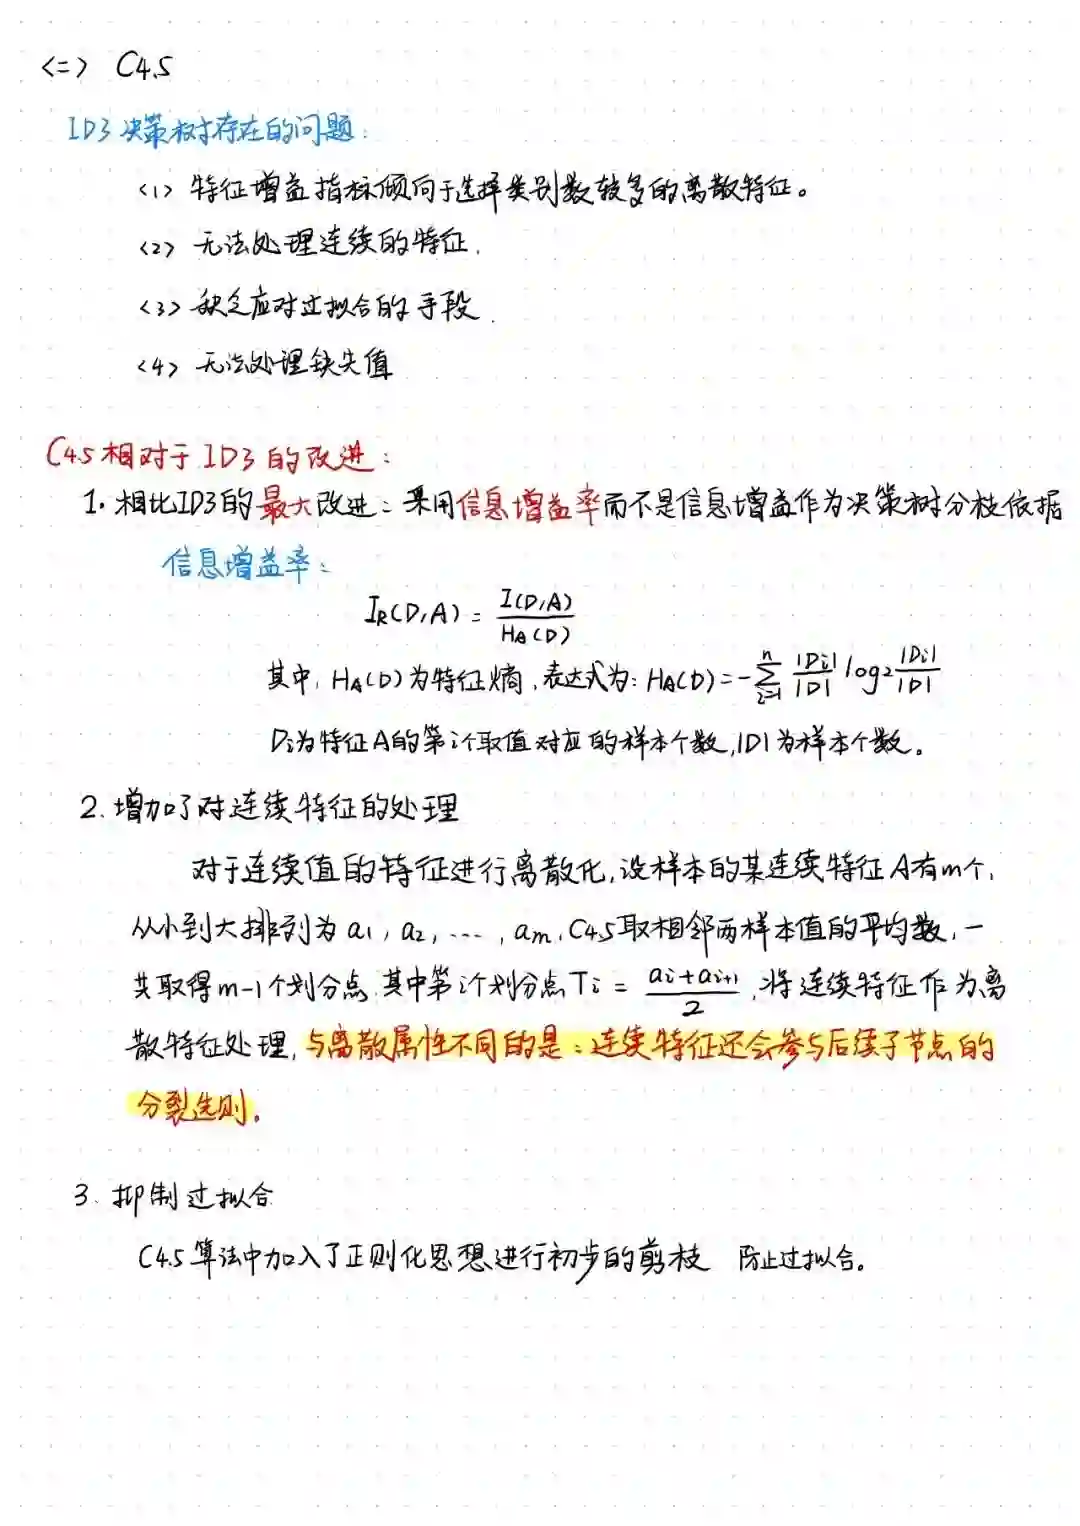 <二> C4.5
ID3决策树存在的问题:
<1> 特征增益指标倾向于选择类别数较多的离散特征。
<2> 无法处理连续的特征.
<3> 缺乏应对过拟合的手段.
<4> 无法处理缺失值
C4.5相对于ID3的改进:
1. 相比ID3的最大改进: 采用信息增益率而不是信息增益作为决策树分枝依据
信息增益率:
I_R(D,A) = I(D,A) / H_A(D)
其中, H_A(D)为特征熵, 表达式为: H_A(D) = -∑_{i=1}^{n} |Di|/|D| log₂ |Di|/|D|
Di为特征A的第i个取值对应的样本个数, |D|为样本个数。
2. 增加了对连续特征的处理
对于连续值的特征进行离散化, 设样本的某连续特征A有m个,
从小到大排列为 a₁, a₂, ..., aₘ, C4.5取相邻两样本值的平均数, 一
共取得m-1个划分点. 其中第i个划分点Ti = (ai+ai+1)/2, 将连续特征作为离
散特征处理, 与离散属性不同的是: 连续特征还会参与后续子节点的
分裂选则。
3. 抑制过拟合
C4.5算法中加入了正则化思想进行初步的剪枝 防止过拟合。